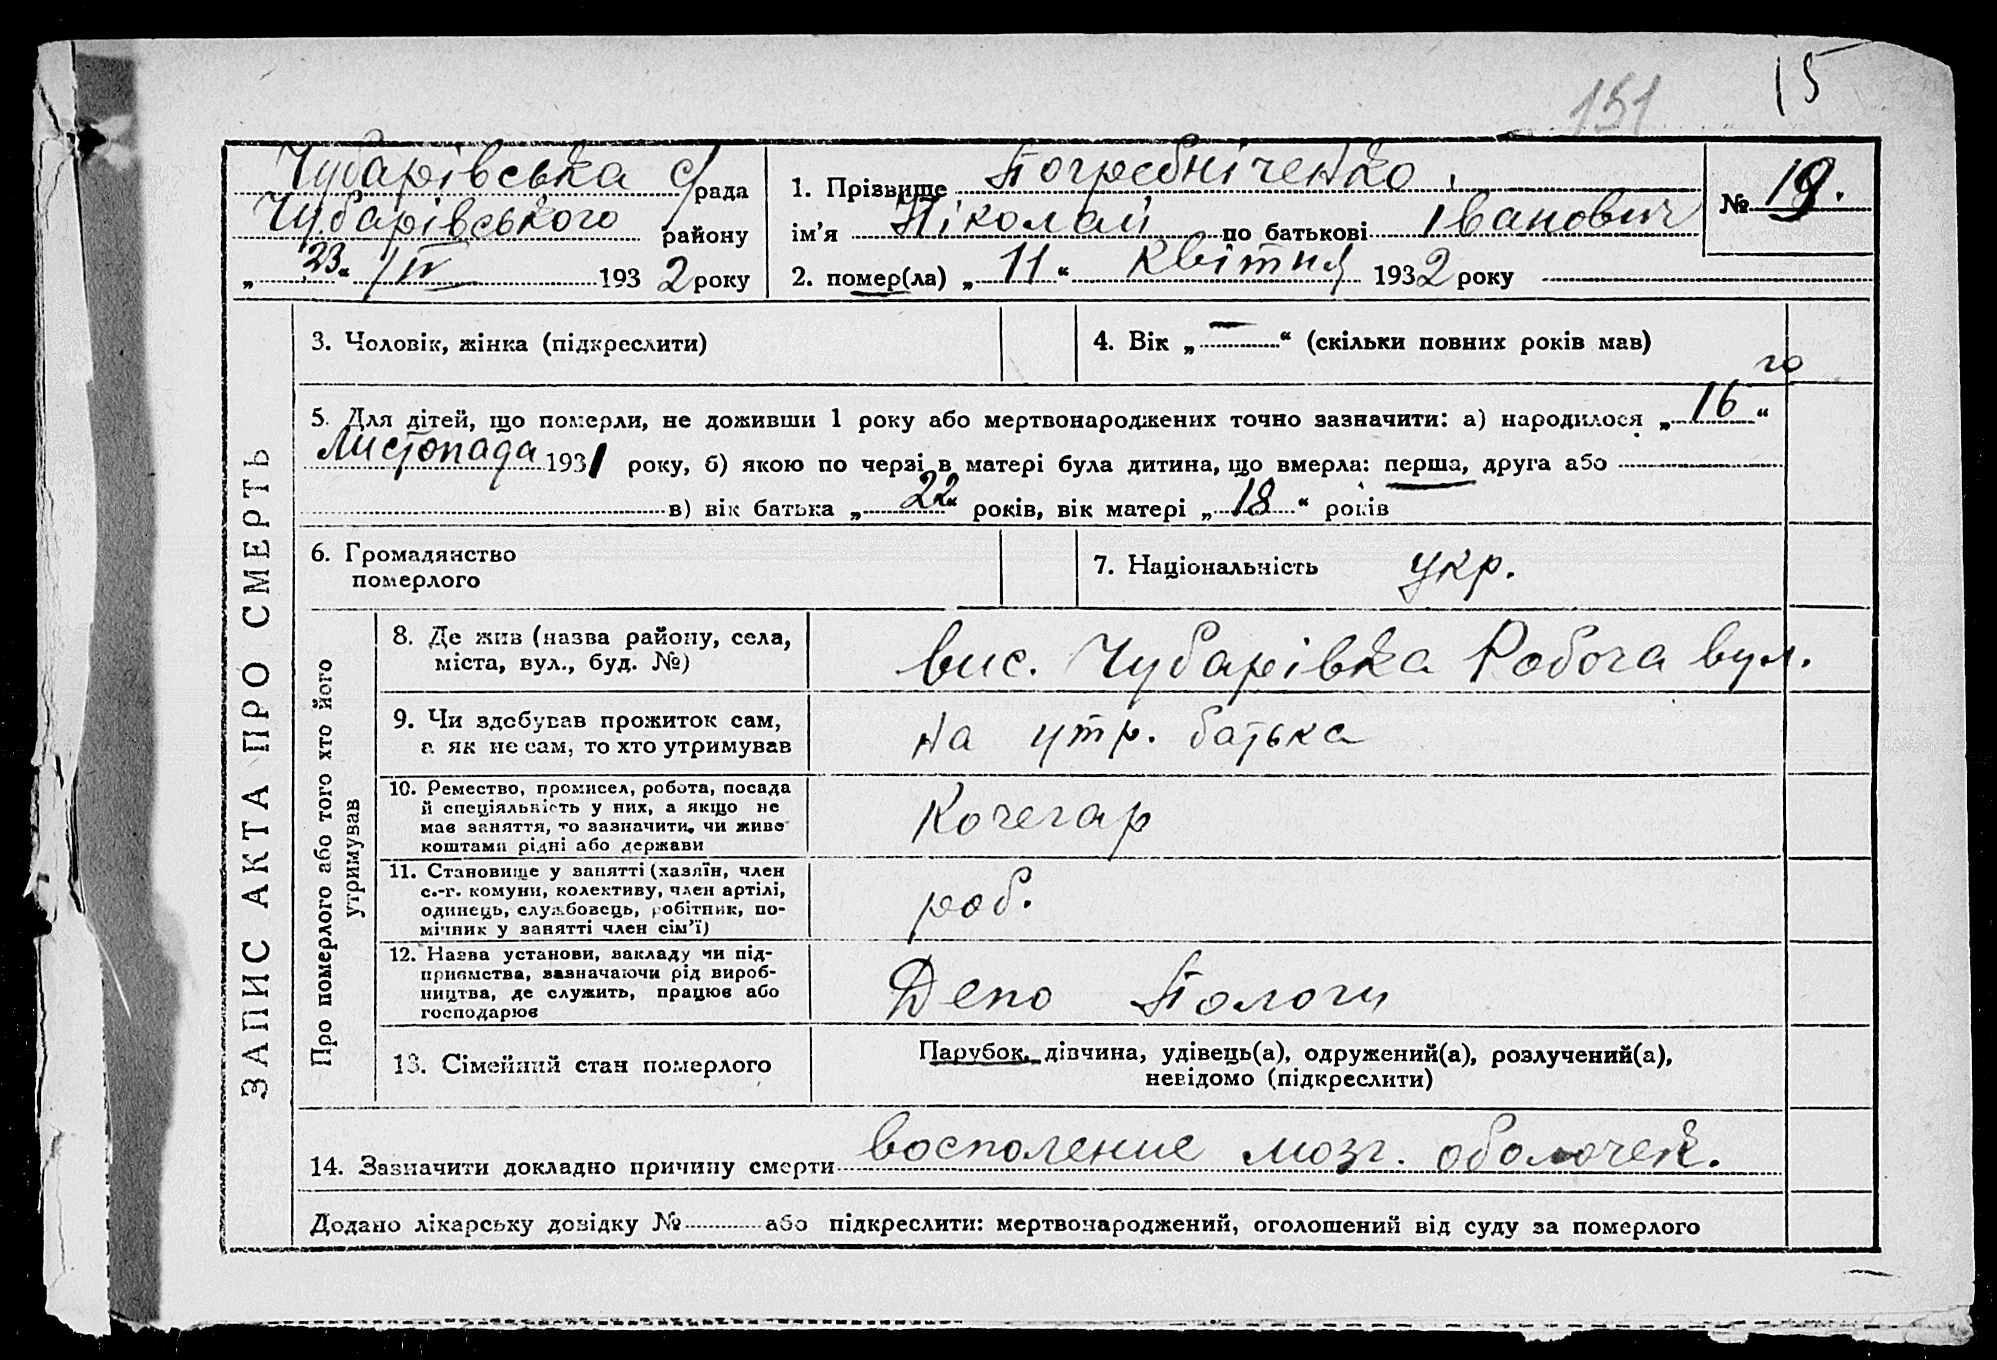 15
151
Чубарівська с/рада
Чубарівського району
„23“ /IV 1932 року
1. Прізвище Погребніченко
ім’я Ніколай по батькові Іванович
2. помер(ла) „11“ Квітня 1932 року
№ 19.
ЗАПИС АКТА ПРО СМЕРТЬ
3. Чоловік, жінка (підкреслити)
4. Вік „—“ (скільки повних років мав)
5. Для дітей, що померли, не доживши 1 року або мертвонароджених точно зазначити: а) народилося „16го“
Листопада 1931 року, б) якою по черзі в матері була дитина, що вмерла: перша, друга або
в) вік батька „22“ років, вік матері „18“ років
6. Громадянство
померлого
7. Національність укр.
Про померлого або того хто його
утримував
8. Де жив (назва району, села,
міста, вул., буд. №)
вис. Чубарівка Робоча вул.
9. Чи здобував прожиток сам,
а як не сам, то хто утримував
на утр. батька
10. Ремество, промисел, робота, посада
й спеціяльність у них, а якщо не
має заняття, то зазначити, чи живе
коштами рідні або держави
Кочегар
11. Становище у занятті (хазяїн, член
с.-г. комуни, колективу, член артілі,
одинець, службовець, робітник, по-
мічник у занятті член сім’ї)
роб.
12. Назва установи, закладу чи під-
приємства, зазначаючи рід вироб-
ництва, де служить, працює або
господарює
Депо Пологи
13. Сімейний стан померлого
Парубок, дівчина, удівець(а), одружений(а), розлучений(а),
невідомо (підкреслити)
14. Зазначити докладно причину смерти восполение мозг. оболочек.
Додано лікарську довідку № або підкреслити: мертвонароджений, оголошений від суду за померлого